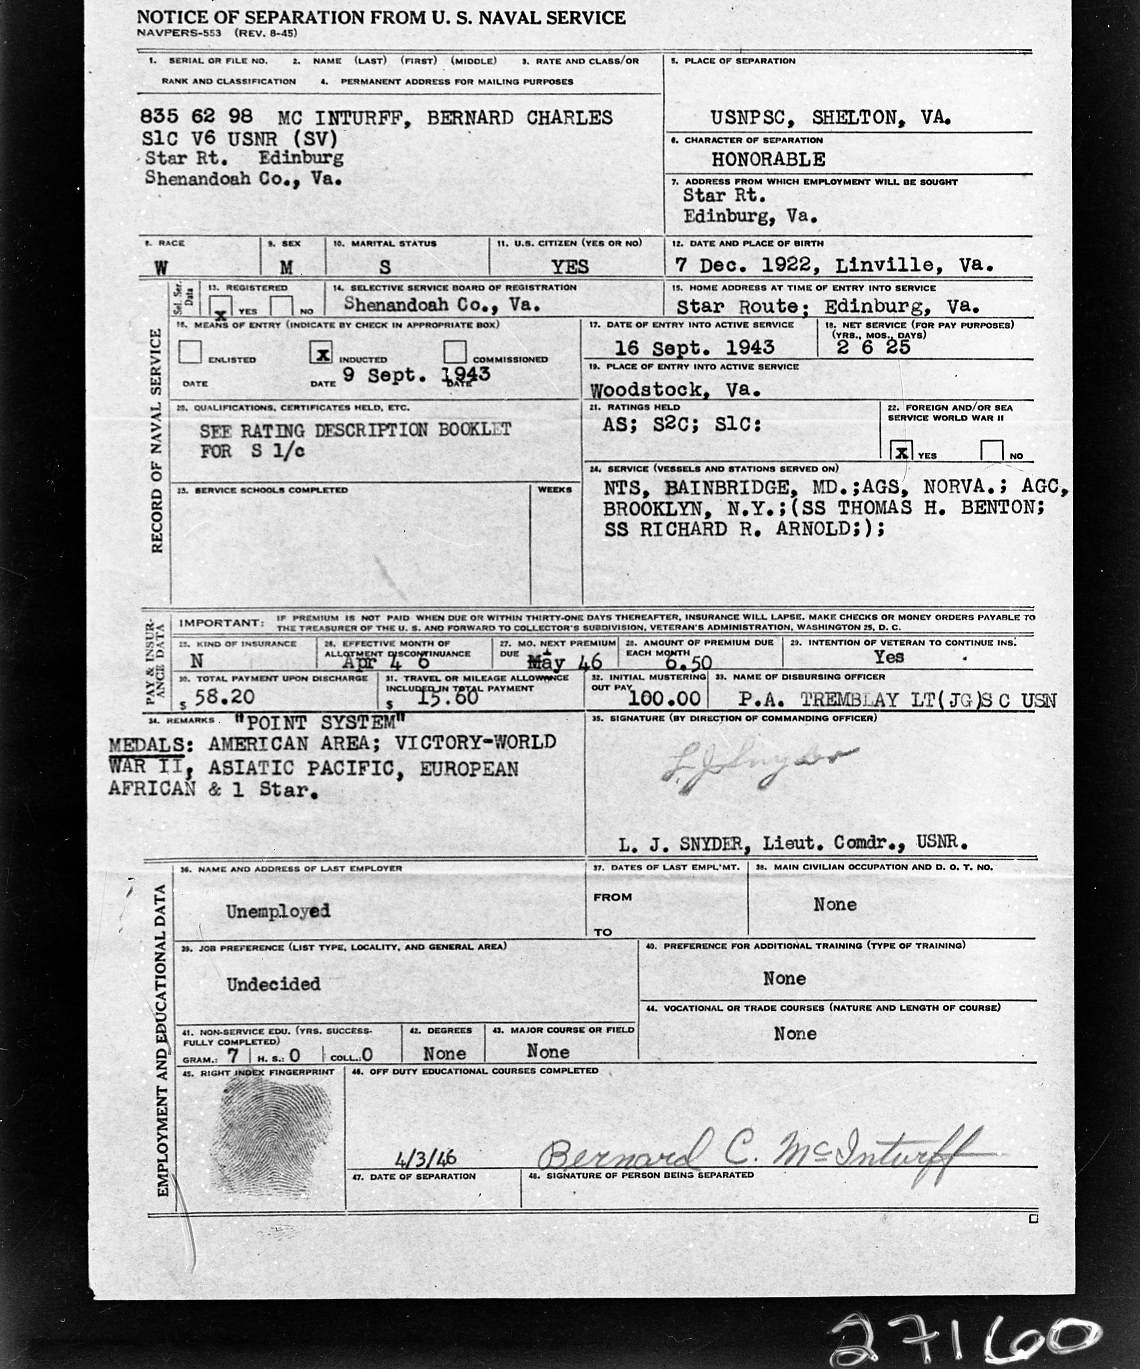 NOTICE OF SEPARATION FROM U. S. NAVAL SERVICE
NAVPERS-553 (REV. 8-45)
1. SERIAL OR FILE NO. 2. NAME (LAST) (FIRST) (MIDDLE) 3. RATE AND CLASS/OR
RANK AND CLASSIFICATION 4. PERMANENT ADDRESS FOR MAILING PURPOSES
835 62 98 MC INTURFF, BERNARD CHARLES
S1C V6 USNR (SV)
Star Rt. Edinburg
Shenandoah Co., Va.
5. PLACE OF SEPARATION
USNPSC, SHELTON, VA.
6. CHARACTER OF SEPARATION
HONORABLE
7. ADDRESS FROM WHICH EMPLOYMENT WILL BE SOUGHT
Star Rt.
Edinburg, Va.
8. RACE
W
9. SEX
M
10. MARITAL STATUS
S
11. U.S. CITIZEN (YES OR NO)
YES
12. DATE AND PLACE OF BIRTH
7 Dec. 1922, Linville, Va.
Sel. Ser.
Data
13. REGISTERED
X YES NO
14. SELECTIVE SERVICE BOARD OF REGISTRATION
Shenandoah Co., Va.
15. HOME ADDRESS AT TIME OF ENTRY INTO SERVICE
Star Route; Edinburg, Va.
RECORD OF NAVAL SERVICE
16. MEANS OF ENTRY (INDICATE BY CHECK IN APPROPRIATE BOX)
ENLISTED X INDUCTED COMMISSIONED
DATE DATE 9 Sept. 1943 DATE
17. DATE OF ENTRY INTO ACTIVE SERVICE
16 Sept. 1943
18. NET SERVICE (FOR PAY PURPOSES)
(YRS., MOS., DAYS)
2 6 25
19. PLACE OF ENTRY INTO ACTIVE SERVICE
Woodstock, Va.
20. QUALIFICATIONS, CERTIFICATES HELD, ETC.
SEE RATING DESCRIPTION BOOKLET
FOR S 1/c
21. RATINGS HELD
AS; S2C; S1C:
22. FOREIGN AND/OR SEA
SERVICE WORLD WAR II
X YES NO
23. SERVICE SCHOOLS COMPLETED
WEEKS
24. SERVICE (VESSELS AND STATIONS SERVED ON)
NTS, BAINBRIDGE, MD.;AGS, NORVA.; AGC,
BROOKLYN, N.Y.;(SS THOMAS H. BENTON;
SS RICHARD R. ARNOLD;);
PAY & INSUR-
ANCE DATA
IMPORTANT: IF PREMIUM IS NOT PAID WHEN DUE OR WITHIN THIRTY-ONE DAYS THEREAFTER, INSURANCE WILL LAPSE. MAKE CHECKS OR MONEY ORDERS PAYABLE TO
THE TREASURER OF THE U. S. AND FORWARD TO COLLECTOR'S SUBDIVISION, VETERAN'S ADMINISTRATION, WASHINGTON 25, D. C.
25. KIND OF INSURANCE
N
26. EFFECTIVE MONTH OF
ALLOTMENT DISCONTINUANCE
Apr 4 6
27. MO. NEXT PREMIUM
DUE
May 46
28. AMOUNT OF PREMIUM DUE
EACH MONTH
6.50
29. INTENTION OF VETERAN TO CONTINUE INS.
Yes
30. TOTAL PAYMENT UPON DISCHARGE
$ 58.20
31. TRAVEL OR MILEAGE ALLOWANCE
INCLUDED IN TOTAL PAYMENT
$ 15.60
32. INITIAL MUSTERING
OUT PAY
100.00
33. NAME OF DISBURSING OFFICER
P.A. TREMBLAY LT(JG)S C USN
34. REMARKS "POINT SYSTEM"
MEDALS: AMERICAN AREA; VICTORY-WORLD
WAR II, ASIATIC PACIFIC, EUROPEAN
AFRICAN & 1 Star.
35. SIGNATURE (BY DIRECTION OF COMMANDING OFFICER)
L. J. Snyder
L. J. SNYDER, Lieut. Comdr., USNR.
EMPLOYMENT AND EDUCATIONAL DATA
36. NAME AND ADDRESS OF LAST EMPLOYER
Unemployed
37. DATES OF LAST EMPL'MT.
FROM
TO
38. MAIN CIVILIAN OCCUPATION AND D. O. T. NO.
None
39. JOB PREFERENCE (LIST TYPE, LOCALITY, AND GENERAL AREA)
Undecided
40. PREFERENCE FOR ADDITIONAL TRAINING (TYPE OF TRAINING)
None
41. NON-SERVICE EDU. (YRS. SUCCESS-
FULLY COMPLETED)
GRAM.: 7 H. S.: 0 COLL.: 0
42. DEGREES
None
43. MAJOR COURSE OR FIELD
None
44. VOCATIONAL OR TRADE COURSES (NATURE AND LENGTH OF COURSE)
None
45. RIGHT INDEX FINGERPRINT
46. OFF DUTY EDUCATIONAL COURSES COMPLETED
4/3/46
47. DATE OF SEPARATION
Bernard C. McInturff
48. SIGNATURE OF PERSON BEING SEPARATED
27160